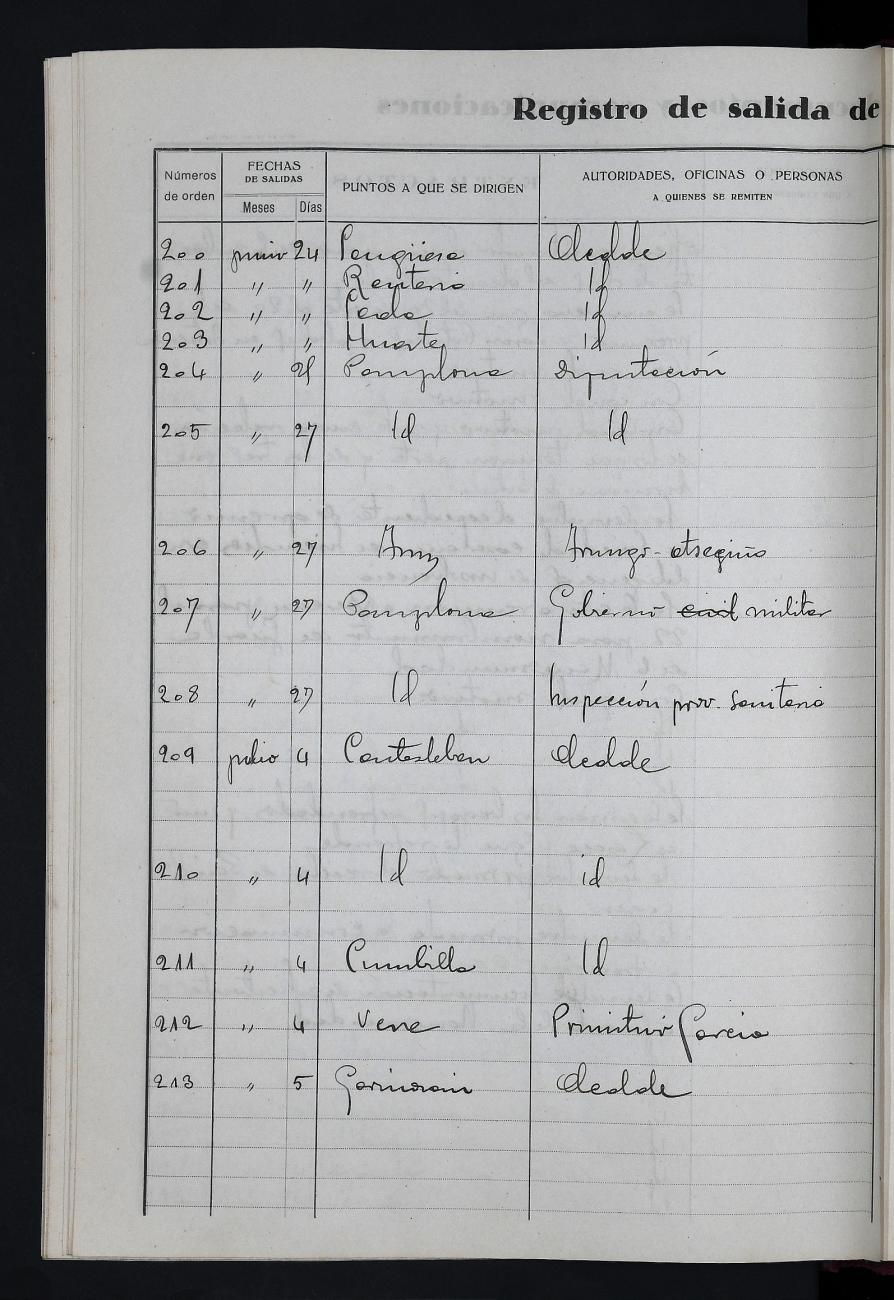 Registro de salida de
Números de orden FECHAS DE SALIDAS Meses Días PUNTOS A QUE SE DIRIGEN AUTORIDADES, OFICINAS O PERSONAS A QUIENES SE REMITEN
200 junio 24 Alcalde
201 " " Renteria Id
202 " " id
203 " " Huarte id
204 " 25 Pamplona Diputación
205 " 27 Id Id
206 " 27
207 " 27 Pamplona Gobierno civil militar
208 " 27 Id Inspección prov. Sanitaria
209 julio 4 Alcalde
210 " 4 Id id
211 " 4 Id
212 " 4 Vera Primitivo Garcia
213 " 5 Garinoain Alcalde